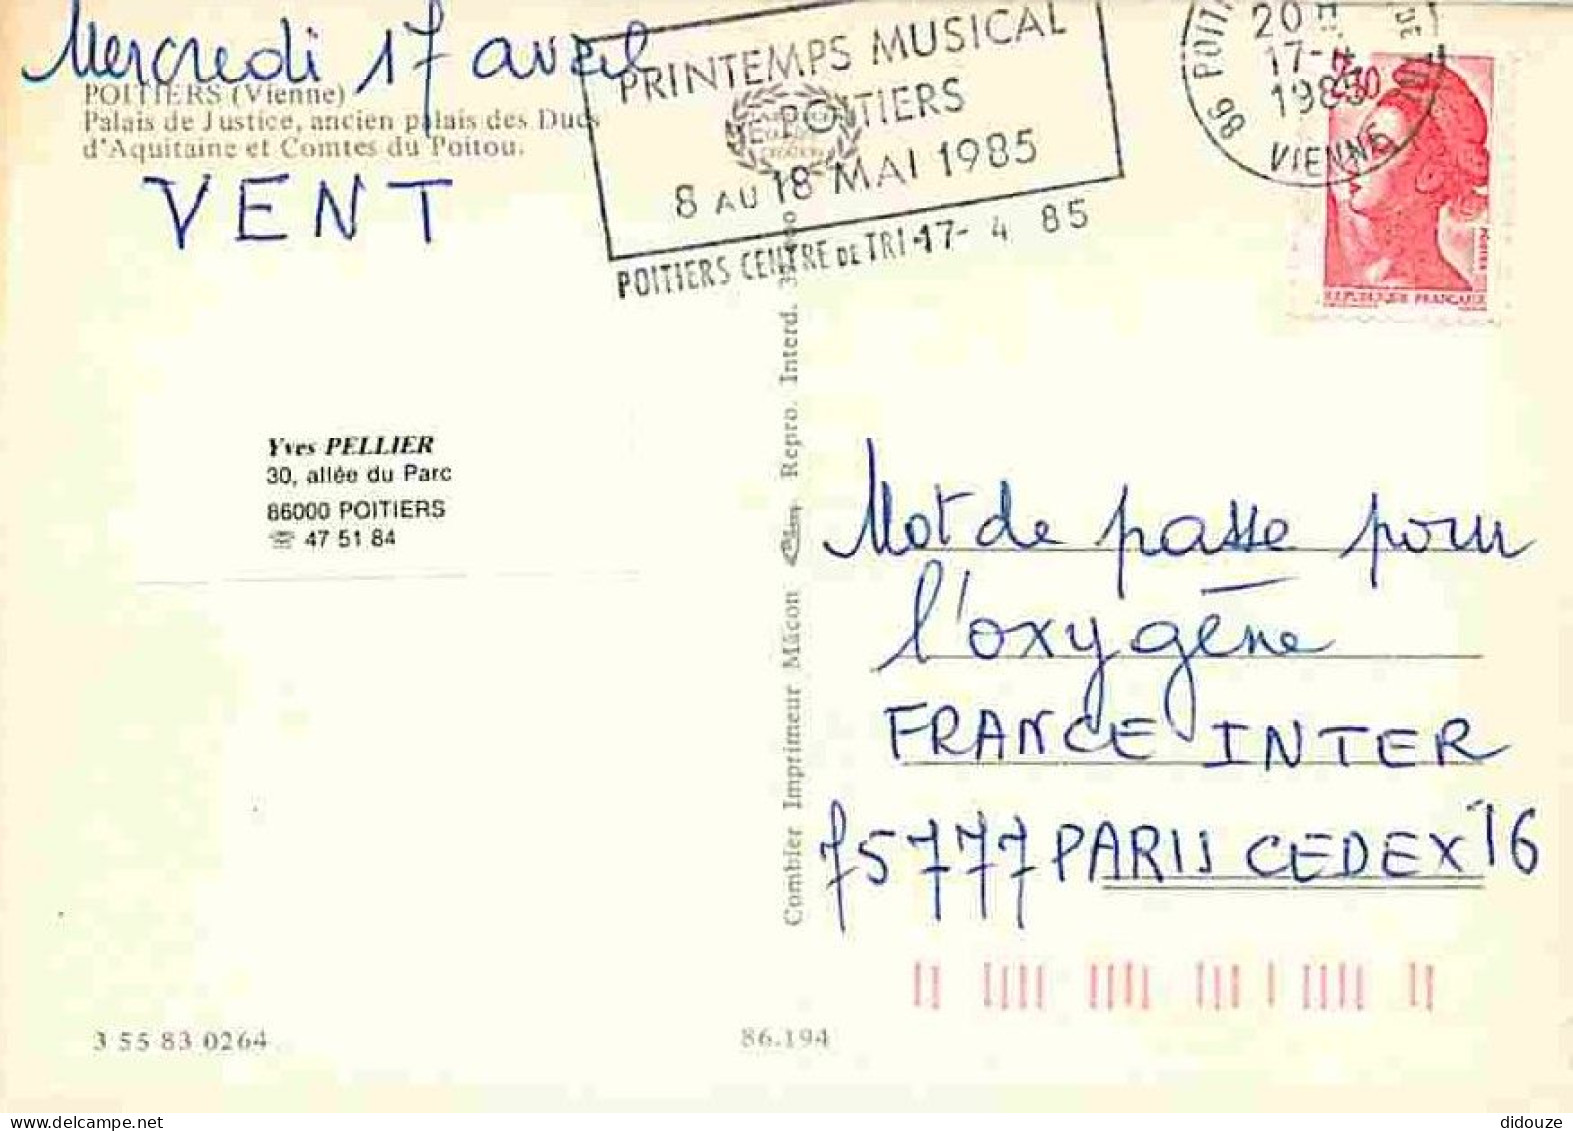 Mercredi 17 avril
POITIERS (Vienne)
Palais de Justice, ancien palais des Ducs
d'Aquitaine et Comtes du Poitou.
VENT
PRINTEMPS MUSICAL
DE POITIERS
8 AU 18 MAI 1985
POITIERS CENTRE DE TRI-17- 4 85
17-4
1985
VIENNE
2,30
POSTES
REPUBLIQUE FRANÇAISE
Yves PELLIER
30, allée du Parc
86000 POITIERS
☏ 47 51 84
Combier Imprimeur Mâcon
Repro. Interd.
Mot de passe pour
l'oxygène
FRANCE INTER
75777 PARIS CEDEX 16
3 55 83 0264
86.194
didouze